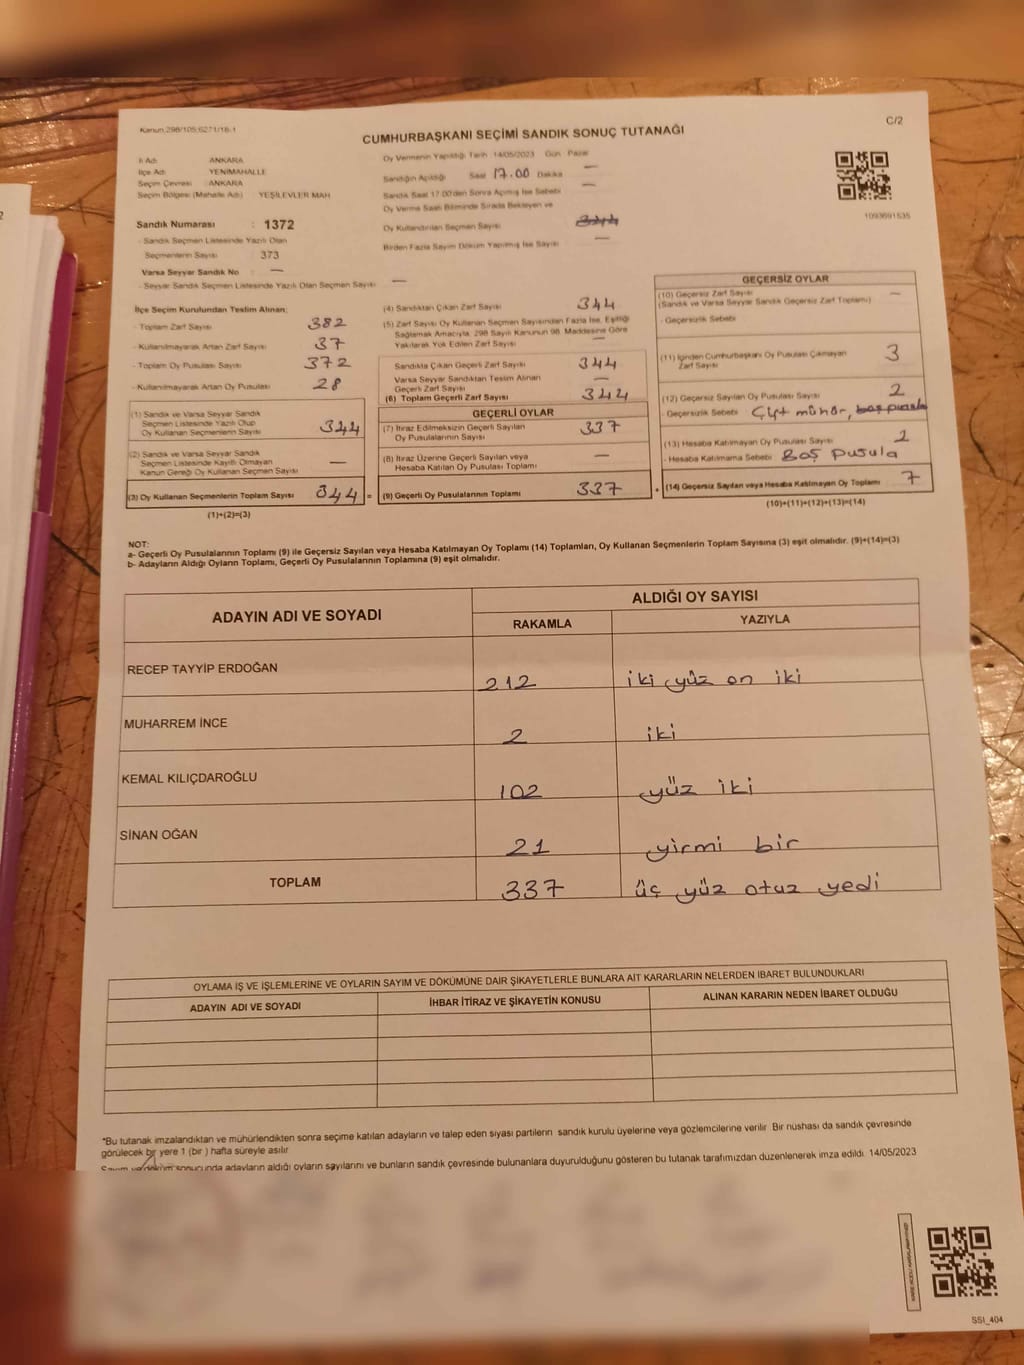 Kanun.298/105;6271/18-1
C/2
CUMHURBAŞKANI SEÇİMİ SANDIK SONUÇ TUTANAĞI
İl Adı : ANKARA
İlçe Adı : YENİMAHALLE
Seçim Çevresi : ANKARA
Seçim Bölgesi (Mahalle Adı) : YEŞİLEVLER MAH
Sandık Numarası : 1372
- Sandık Seçmen Listesinde Yazılı Olan
Seçmenlerin Sayısı : 373
Varsa Seyyar Sandık No : —
- Seyyar Sandık Seçmen Listesinde Yazılı Olan Seçmen Sayısı : —
Oy Vermenin Yapıldığı Tarih 14/05/2023 Gün Pazar
Sandığın Açıldığı Saat 17.00 Dakika —
Sandık Saat 17.00'den Sonra Açılmış İse Sebebi —
Oy Verme Saati Bitiminde Sırada Bekleyen ve
Oy Kullandırılan Seçmen Sayısı 344
Birden Fazla Sayım Döküm Yapılmış İse Sayısı —
1093691535
İlçe Seçim Kurulundan Teslim Alınan;
- Toplam Zarf Sayısı 382
- Kullanılmayarak Artan Zarf Sayısı 37
- Toplam Oy Pusulası Sayısı 372
- Kullanılmayarak Artan Oy Pusulası 28
(1) Sandık ve Varsa Seyyar Sandık
Seçmen Listesinde Yazılı Olup
Oy Kullanan Seçmenlerin Sayısı 344
(2) Sandık ve Varsa Seyyar Sandık
Seçmen Listesinde Kayıtlı Olmayan
Kanun Gereği Oy Kullanan Seçmen Sayısı —
(3) Oy Kullanan Seçmenlerin Toplam Sayısı 344 =
(1)+(2)=(3)
(4) Sandıktan Çıkan Zarf Sayısı 344
(5) Zarf Sayısı Oy Kullanan Seçmen Sayısından Fazla İse, Eşitliği
Sağlamak Amacıyla, 298 Sayılı Kanunun 98. Maddesine Göre
Yakılarak Yok Edilen Zarf Sayısı —
Sandıkta Çıkan Geçerli Zarf Sayısı 344
Varsa Seyyar Sandıktan Teslim Alınan
Geçerli Zarf Sayısı —
(6) Toplam Geçerli Zarf Sayısı 344
GEÇERLİ OYLAR
(7) İtiraz Edilmeksizin Geçerli Sayılan
Oy Pusulalarının Sayısı 337
(8) İtiraz Üzerine Geçerli Sayılan veya
Hesaba Katılan Oy Pusulası Toplamı —
(9) Geçerli Oy Pusulalarının Toplamı 337 +
GEÇERSİZ OYLAR
(10) Geçersiz Zarf Sayısı —
(Sandık ve Varsa Seyyar Sandık Geçersiz Zarf Toplamı)
- Geçersizlik Sebebi
(11) İçinden Cumhurbaşkanı Oy Pusulası Çıkmayan
Zarf Sayısı 3
(12) Geçersiz Sayılan Oy Pusulası Sayısı 2
- Geçersizlik Sebebi Çift mühür, boş pusula
(13) Hesaba Katılmayan Oy Pusulası Sayısı 2
- Hesaba Katılmama Sebebi Boş pusula
(14) Geçersiz Sayılan veya Hesaba Katılmayan Oy Toplamı 7
(10)+(11)+(12)+(13)=(14)
NOT:
a- Geçerli Oy Pusulalarının Toplamı (9) ile Geçersiz Sayılan veya Hesaba Katılmayan Oy Toplamı (14) Toplamları, Oy Kullanan Seçmenlerin Toplam Sayısına (3) eşit olmalıdır. (9)+(14)=(3)
b- Adayların Aldığı Oyların Toplamı, Geçerli Oy Pusulalarının Toplamına (9) eşit olmalıdır.
ADAYIN ADI VE SOYADI
ALDIĞI OY SAYISI
RAKAMLA YAZIYLA
RECEP TAYYİP ERDOĞAN 212 iki yüz on iki
MUHARREM İNCE 2 iki
KEMAL KILIÇDAROĞLU 102 yüz iki
SİNAN OĞAN 21 yirmi bir
TOPLAM 337 üç yüz otuz yedi
OYLAMA İŞ VE İŞLEMLERİNE VE OYLARIN SAYIM VE DÖKÜMÜNE DAİR ŞİKAYETLERLE BUNLARA AİT KARARLARIN NELERDEN İBARET BULUNDUKLARI
ADAYIN ADI VE SOYADI İHBAR İTİRAZ VE ŞİKAYETİN KONUSU ALINAN KARARIN NEDEN İBARET OLDUĞU
*Bu tutanak imzalandıktan ve mühürlendikten sonra seçime katılan adayların ve talep eden siyasi partilerin sandık kurulu üyelerine veya gözlemcilerine verilir. Bir nüshası da sandık çevresinde
görülecek bir yere 1 (bir ) hafta süreyle asılır.
Sayım ve döküm sonucunda adayların aldığı oyların sayılarını ve bunların sandık çevresinde bulunanlara duyurulduğunu gösteren bu tutanak tarafımızdan düzenlenerek imza edildi. 14/05/2023
SSI_404